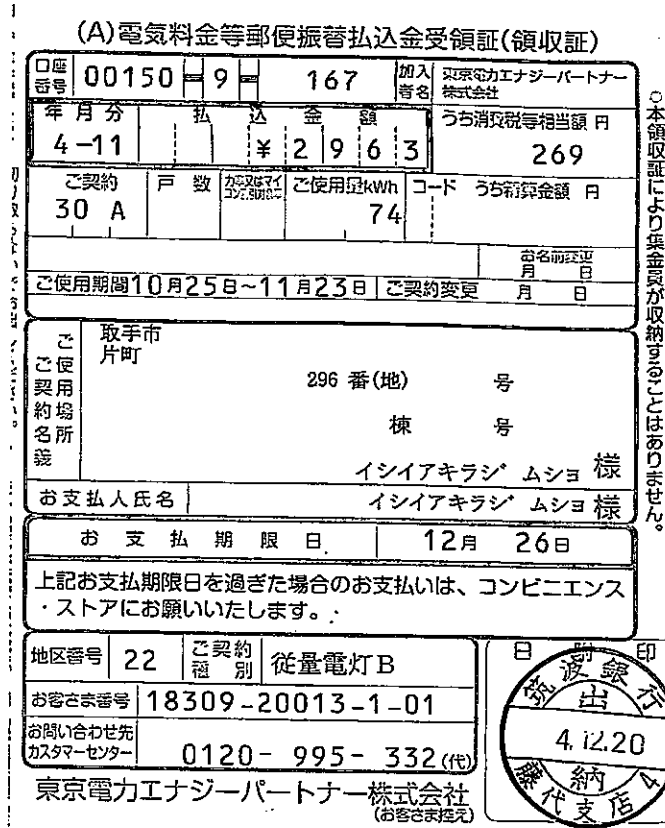 (A)電気料金等郵便振替払込金受領証(領収証)
口座番号 00150-9-167 加入者名 東京電力エナジーパートナー株式会社
年月分 払込金額 うち消費税等相当額 円
4-11 ¥2963 269
ご契約 戸数 ご使用量kWh コード うち精算金額 円
30 A 74
お名前変更 月 日
ご使用期間10月25日~11月23日 ご契約変更 月 日
ご使用場所
ご契約名義
取手市
片町
296 番(地) 号
棟 号
イシイアキラジムショ 様
お支払人氏名 イシイアキラジムショ 様
お支払期限日 12月 26日
上記お支払期限日を過ぎた場合のお支払いは、コンビニエンス
・ストアにお願いいたします。
地区番号 22 ご契約種別 従量電灯B
お客さま番号 18309-20013-1-01
お問い合わせ先
カスタマーセンター 0120-995-332(代)
東京電力エナジーパートナー株式会社
(お客さま控え)
日附印
筑波銀行
出
4.12.20
納
藤代支店 4
○本領収証により集金員が収納することはありません。